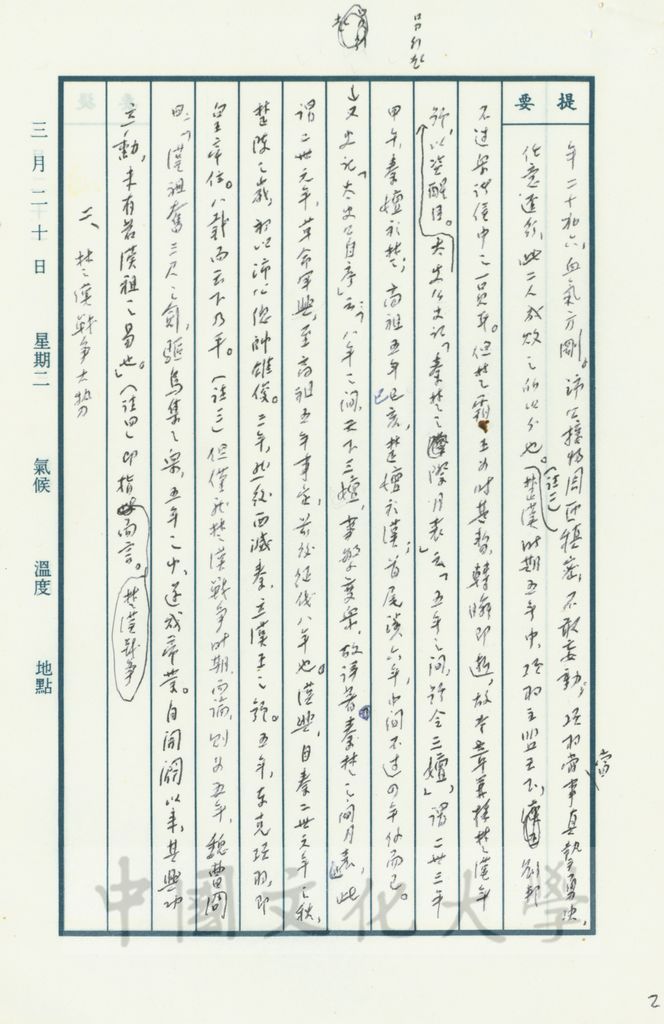 呂不韋
提要
年二十有六，血氣方剛。沛公接物周匝穩密，不敢妄動。項羽當事真摯勇決，
任意逕行，此二人成敗之所以分也。（註二）楚漢時期五年中，項羽主盟天下，劉邦
不過眾諸侯中之一員耳。但楚霸王為時甚暫，轉瞬即逝，故本章單採楚漢年
號，以資醒目。太史公史記「秦楚之際月表」云「五年之間，號令三嬗」，謂二世三年
甲午，秦嬗於楚；高祖五年己亥，楚嬗於漢，首尾淺六年，中間不過四年份而已。
又史記「太史公自序」云：「八年之間，天下三嬗，事繁變眾，故詳著秦楚之間月表」，此
謂二世元年，革命軍興，至高祖五年事定，前後經綫八年也。漢興，自秦二世元年之秋，
楚陳之歲，初以沛公總帥雄俊。三年，然後西滅秦，立漢王之號。五年，東克項羽，即
皇帝位。八載而天下乃平。（註三）但僅就楚漢戰爭時期而論，則為五年，魏曹冏
曰：「漢祖奮三尺之劍，驅烏集之眾，五年之中，遂成帝業。自開闢以來，其興功
立勳，未有若漢祖之易也」。（註四）即指楚漢戰爭而言。
二、楚漢戰爭大勢
三月二十日 星期二 氣候 溫度 地點
中國文化大學
2